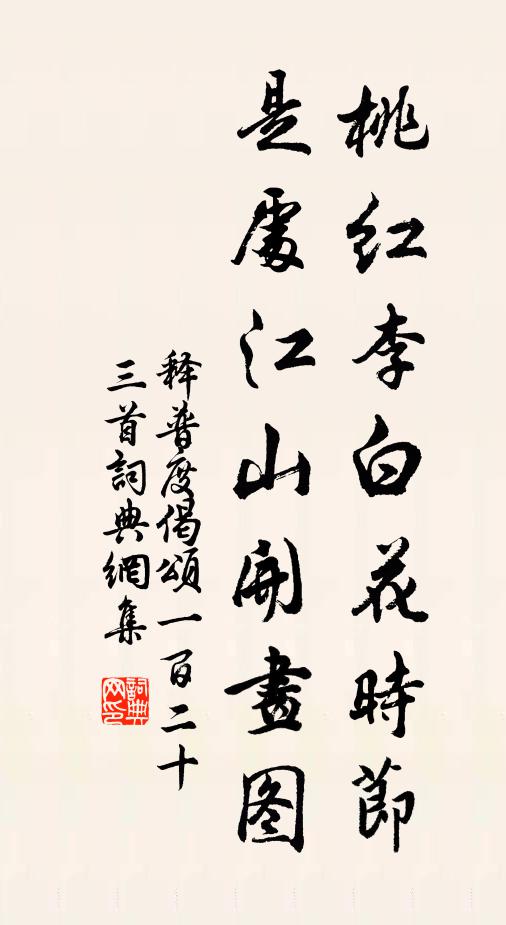 桃紅李白花時節
是處江山開畫图
释普度偈頌一百二十
三首詞典網集
詞典
网印